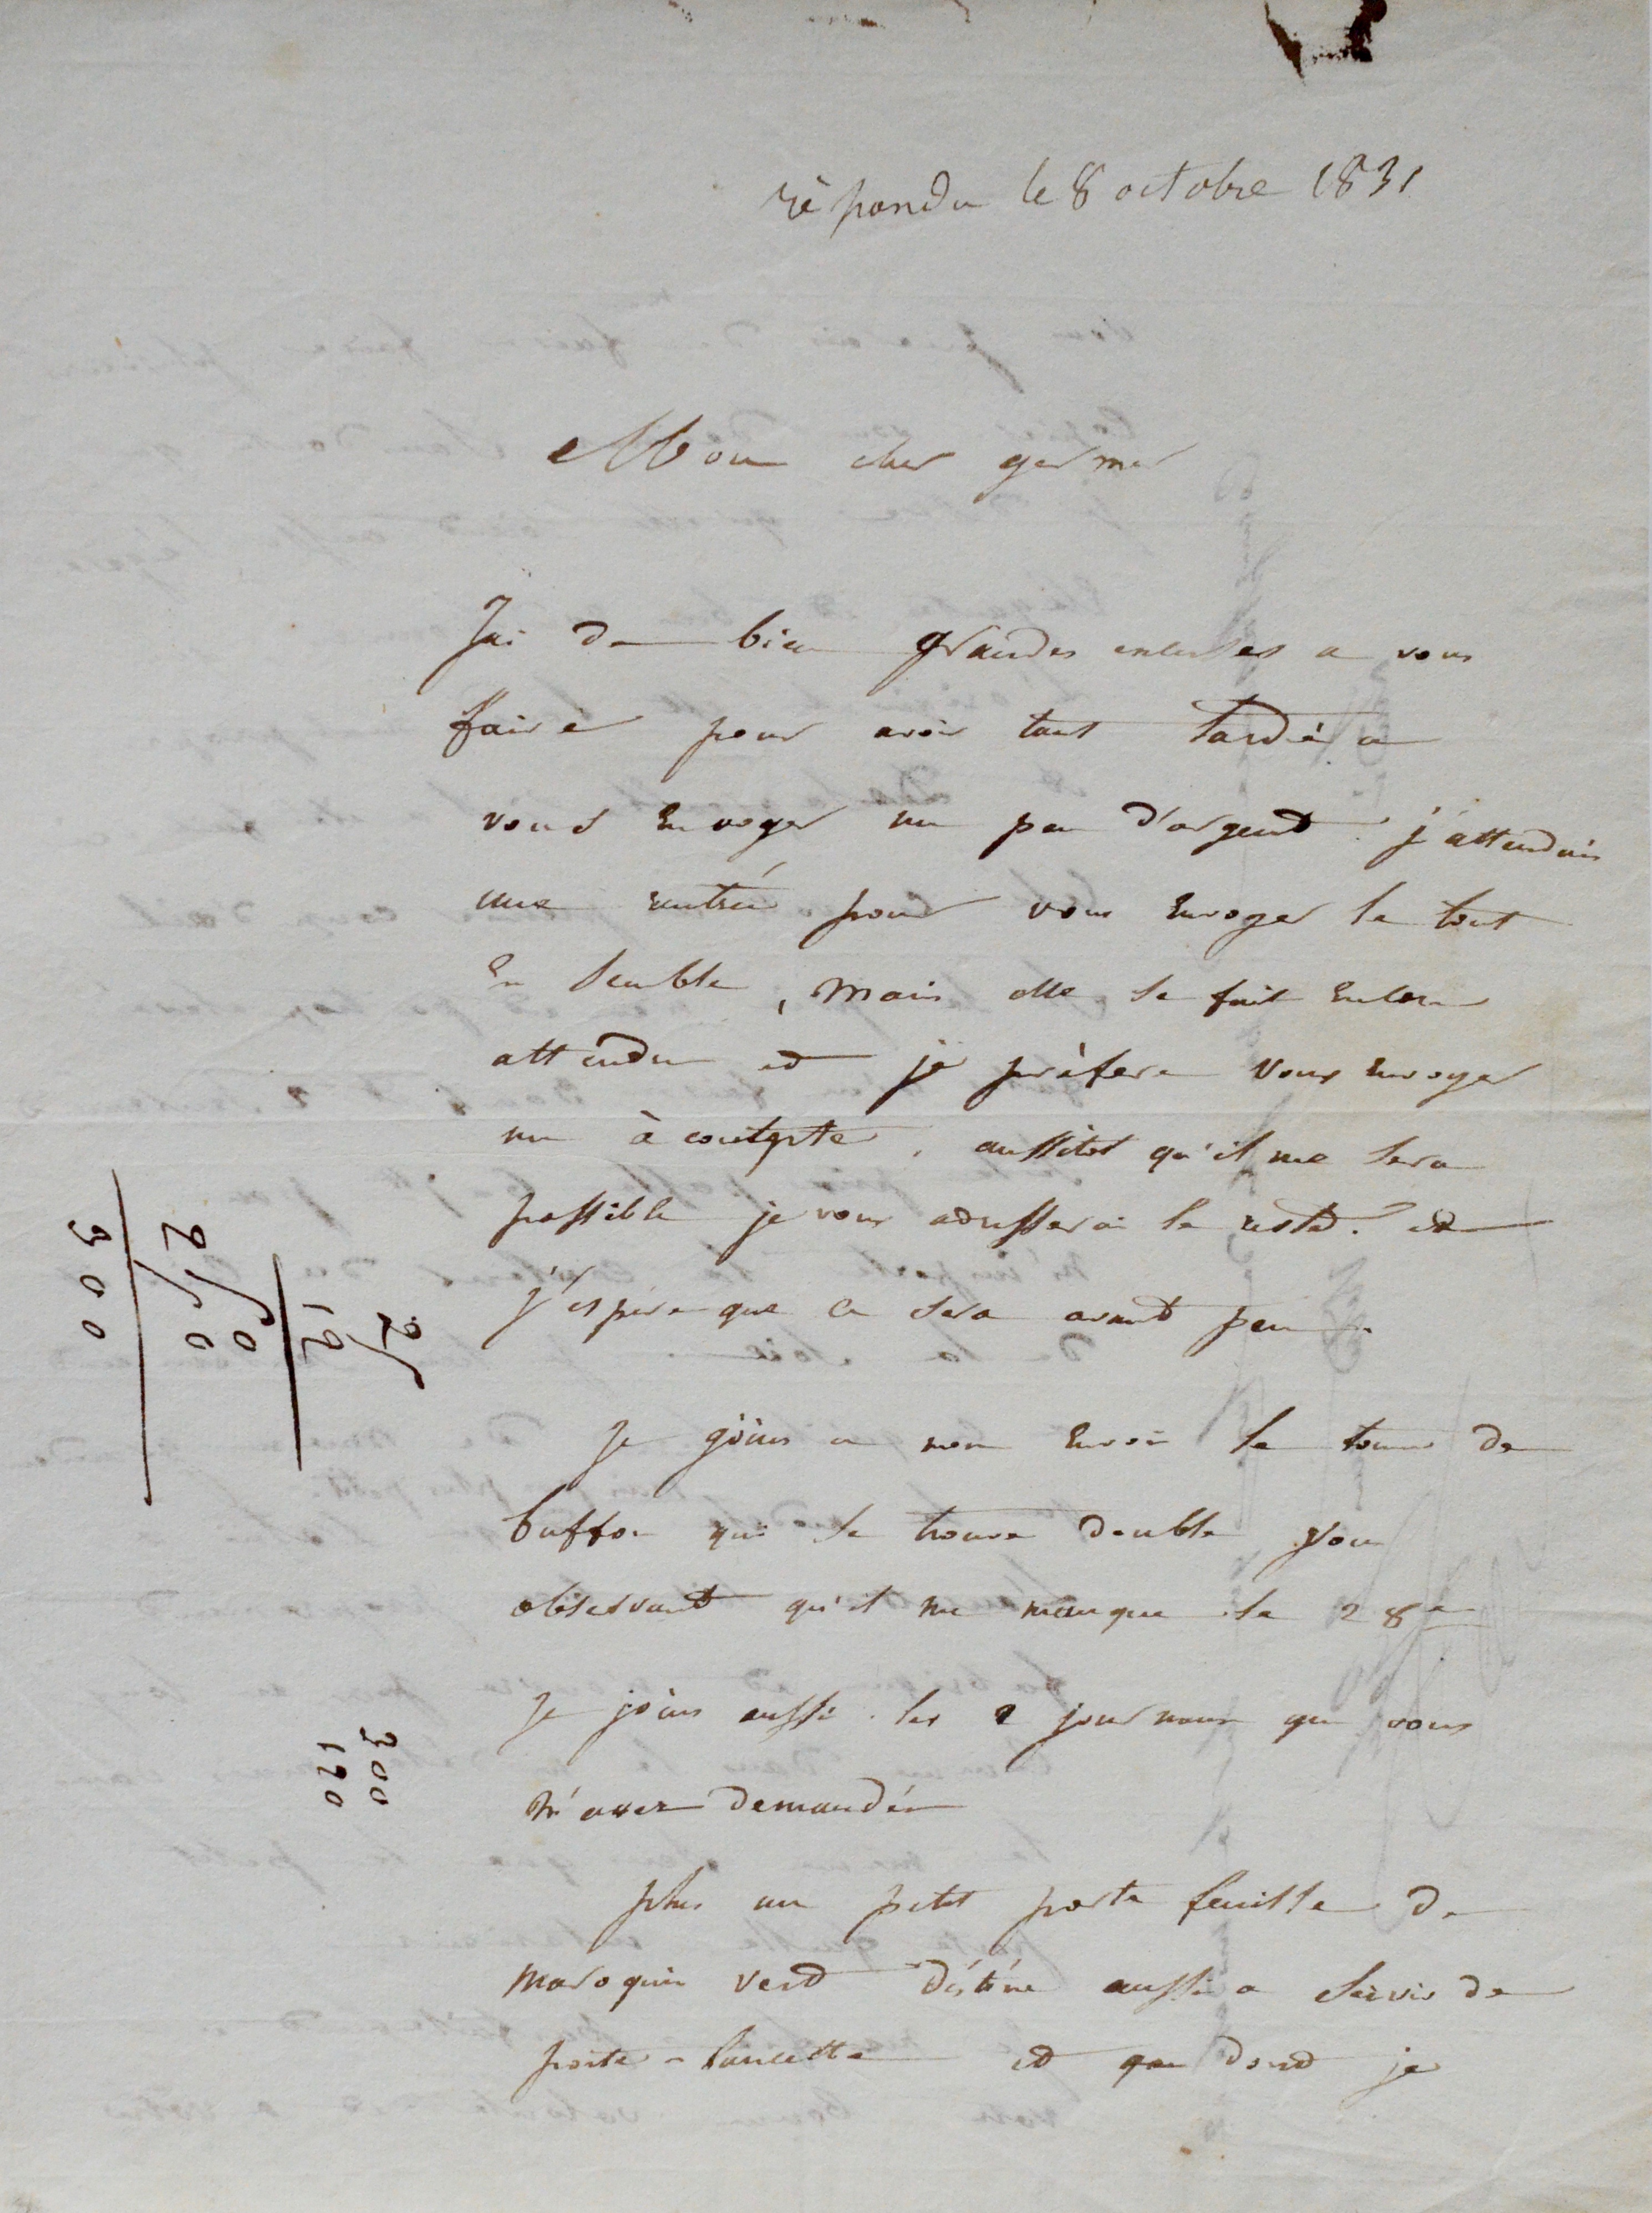 répondu le 8 octobre 1831
Mon cher germer
J'ai de bien grandes excuses a vous
faire pour avoir tant tardé a
vous envoyer un peu d'argent. j'attendais
une rentrée pour vous envoyer le tout
en semble, mais elle se fait encore
attendre et je préfere vous envoyer
un à compte, aussitot qu'il me sera
possible je vous adresserai le reste. et
j'espere que ce sera avant peu.
Je joins a mon envoi le tome de
buffon qui se trouve double vous
observant qu'il me manque le 28e
Je joins aussi les 2 journaux que vous
m'avez demandés
plus un petit porte feuille de
maroquin verd déstiné aussi a servir de
porte-lancette et dont je
25
12
50
250
300
300
120